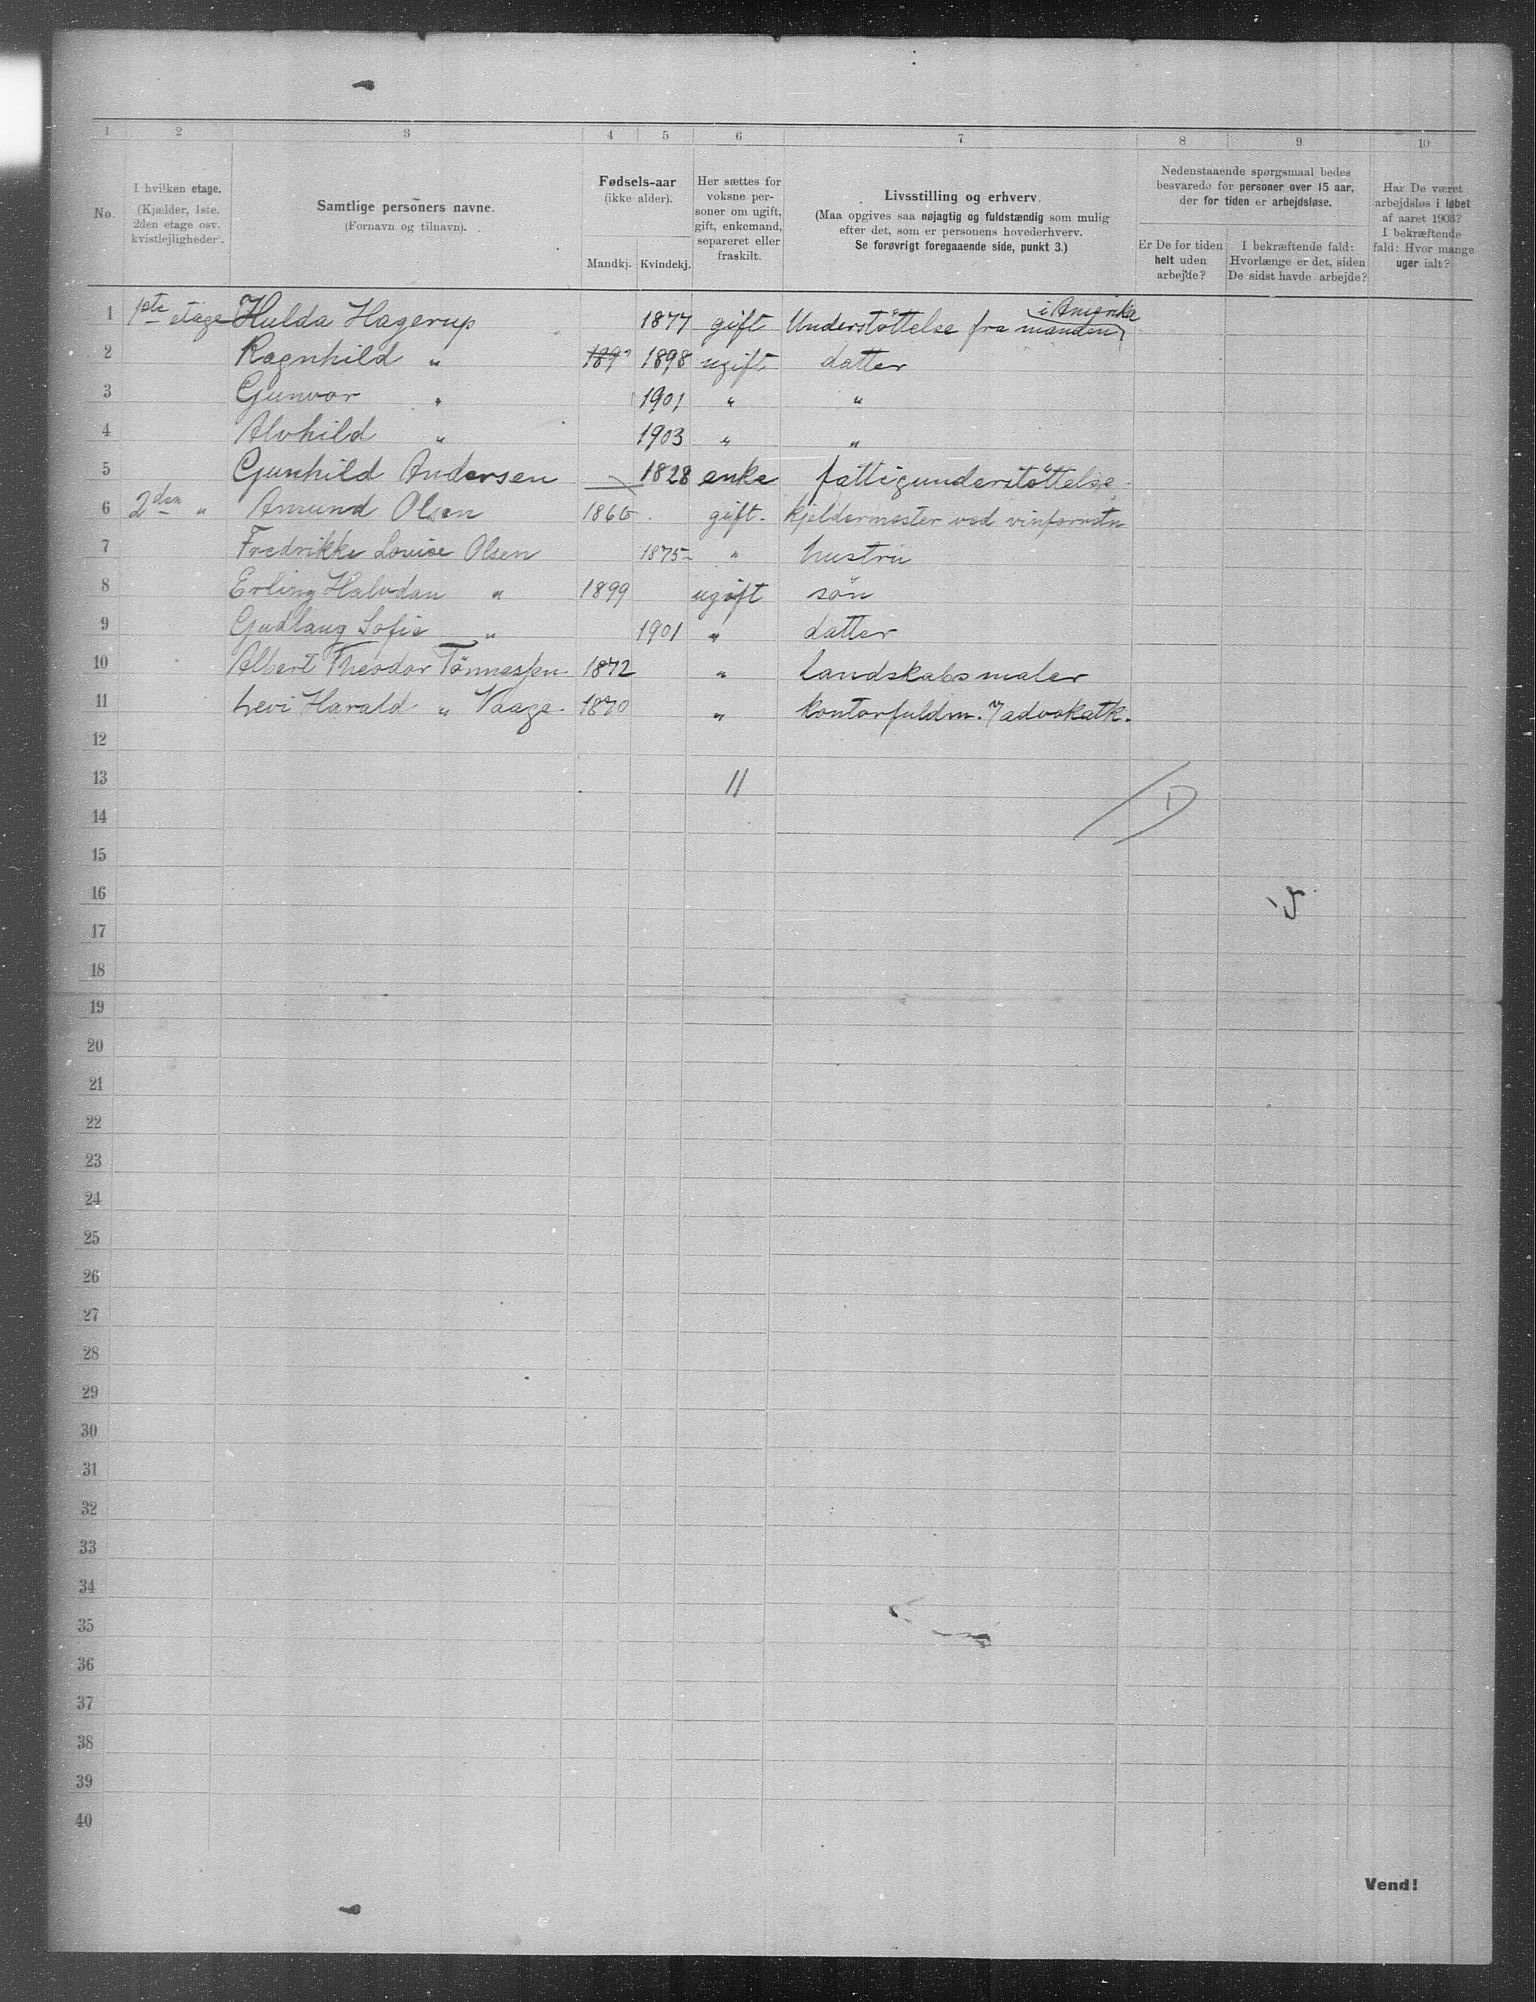 1 2 3 4 5 6 7 8 9 10
No.
I hvilken etage.
(Kjælder, 1ste.
2den etage osv.
kvistlejligheder).
Samtlige personers navne.
(Fornavn og tilnavn).
Fødsels-aar
(ikke alder).
Mandkj. Kvindekj.
Her sættes for
voksne per-
soner om ugift,
gift, enkemand,
separeret eller
fraskilt.
Livsstilling og erhverv.
(Maa opgives saa nøjagtig og fuldstændig som mulig
efter det, som er personens hovederhverv.
Se forøvrigt foregaaende side, punkt 3.)
Nedenstaaende spørgsmaal bedes
besvarede for personer over 15 aar,
der for tiden er arbejdsløse.
Er De for tiden
helt uden
arbejde?
I bekræftende fald:
Hvorlænge er det, siden
De sidst havde arbejde?
Har De været
arbejdsløs i løbet
af aaret 1903?
I bekræftende
fald: Hvor mange
uger ialt?
i Amerika
1 1ste etage Hulda Hagerup 1877 gift Understøttelse fra manden
2 Ragnhild " 189 1898 ugift datter
3 Gunvor " 1901 " "
4 Alvhild " 1903 " "
5 Gunhild Andersen 1828 enke fattigunderstøttelse.
6 2den " Amund Olsen 1866 gift. kjeldermester ved vinforretn
7 Fredrikke Louise Olsen 1875 " hustru
8 Erling Halvdan " 1899 ugift søn
9 Gudlaug Sofie " 1901 " datter
10 Albert Theodor Tønnessen 1872 " landskabsmaler
11 Levi Harald " Vaage 1870 " kontorfuldm. i advokatk.
12
13 11
14
15
16
17
18
19
20
21
22
23
24
25
26
27
28
29
30
31
32
33
34
35
36
37
38
39
40
Vend!